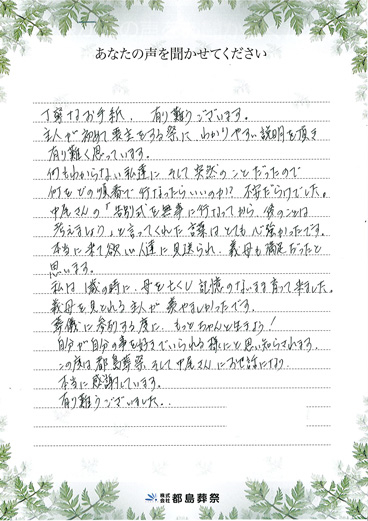 あなたの声を聞かせてください
丁寧なお手紙、有り難うございます。
主人が初めて喪主をする祭に、わかりやすい説明を頂き
有り難く思っています。
何もわからない私達に、そして突然のことだったので
何をどの順番で行なったらいいのか!? 不安だらけでした。
中尾さんの「告別式を無事に行なってから、後のことは
考えましょう」と言ってくれた言葉はとても心強かったです。
本当に来て欲しい人達に見送られ、義母も満足だったと
思います。
私は、1歳の時に、母を亡くし記憶のないまま育って来ました。
義母を見とれる主人が羨やましかったです。
葬儀に参列する度に、もっとちゃんと生きよう!
自分が自分の事を好きでいられる様にと思い知らされます。
この度は都島葬祭、そして中尾さんにお世話になり、
本当に感謝しています。
有り難うございました..
株式会社 都島葬祭